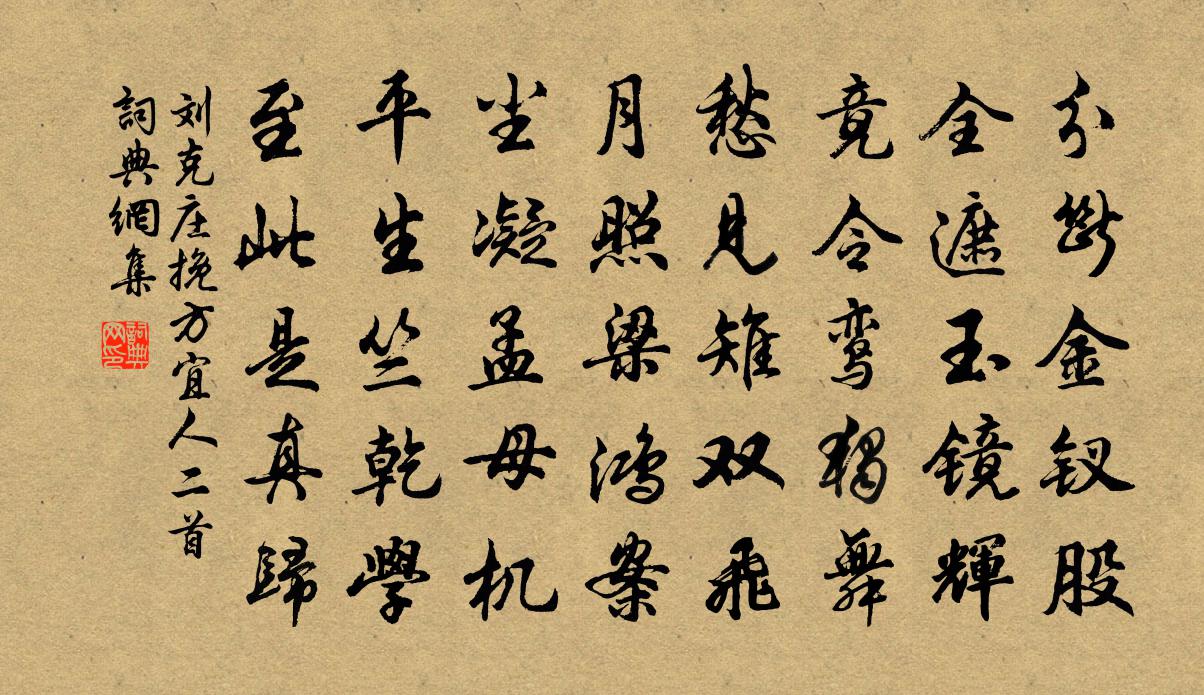 分断金钗股
全遮玉镜輝
竟令鸾獨舞
愁見雉双飛
月照梁鸿案
尘凝孟母机
平生竺乾學
至此是真歸
刘克庄挽方宜人二首
詞典網集
詞典网印